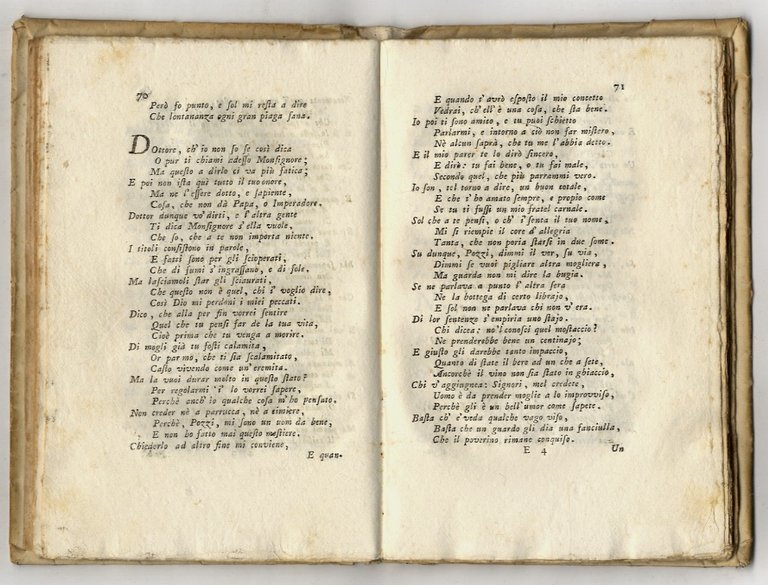 70
Però fo punto, e ſol mi reſta a dire
Che lontananza ogni gran piaga ſana.
DOttore, ch'io non ſo ſe così dica
O pur ti chiami adeſſo Monſignore;
Ma queſto a dirlo ci va più fatica;
E poi non iſta quì tutto il tuo onore,
Ma ne l'eſſere dotto, e ſapiente,
Coſa, che non dà Papa, o Imperadore.
Dottor dunque vo' dirti, e l'altra gente
Ti dica Monſignore s'ella vuole,
Che ſo, che a te non importa niente.
I titoli conſiſtono in parole,
E fatti ſono per gli ſcioperati,
Che di fumi s'ingraſſano, e di ſole.
Ma laſciamoli ſtar gli ſciaurati,
Che queſto non è quel, ch'i' voglio dire,
Così Dio mi perdoni i miei peccati.
Dico, che alla per fin vorrei ſentire
Quel che tu penſi far de la tua vita,
Cioè prima che tu venga a morire.
Di mogli già tu foſti calamita,
Or par mo, che ti ſia ſcalamitato,
Caſto vivendo come un'eremita.
Ma la vuoi durar molto in queſto ſtato?
Per regolarmi i' lo vorrei ſapere,
Perchè anch'io qualche coſa m'ho penſato.
Non creder nè a parrucca, nè a cimiere,
Perchè, Pozzi, mi ſono un uom da bene,
E non ho fatto mai queſto meſtiere.
Chiederlo ad altro fine mi conviene,
E quan-
71
E quando t'avrò eſpoſto il mio concetto
Vedrai, ch'ell'è una coſa, che ſta bene.
Io poi ti ſono amico, e tu puoi ſchietto
Parlarmi, e intorno a ciò non far miſtero,
Nè alcun ſaprà, che tu me l'abbia detto.
E il mio parer te lo dirò ſincero,
E dirò: tu fai bene, o tu fai male,
Secondo quel, che più parrammi vero.
Io ſon, tel torno a dire, un buon cotale,
E che t'ho amato ſempre, e propio come
Se tu ti fuſſi un mio fratel carnale.
Sol che a te penſi, o ch'i' ſenta il tuo nome,
Mi ſi riempie il core d'allegria
Tanta, che non poria ſtarſi in due ſome.
Su dunque, Pozzi, dimmi il ver, ſu via,
Dimmi ſe vuoi pigliare altra mogliera,
Ma guarda non mi dire la bugia.
Se ne parlava a punto l'altra ſera
Ne la bottega di certo librajo,
E ſol non ne parlava chi non v'era.
Di lor ſentenze s'empiria uno ſtajo.
Chi dicea: no'l conoſci quel moſtaccio?
Ne prenderebbe bene un centinajo;
E giuſto gli darebbe tanto impaccio,
Quanto di ſtate il bere ad un che a ſete,
Ancorchè il vino non ſia ſtato in ghiaccio,
Chi v'aggiugnea: Signori, mel credete,
Uomo è da prender moglie a lo improvviſo,
Perchè gli è un bell'umor come ſapete.
Baſta ch'e' veda qualche vago viſo,
Baſta che un guardo gli dia una fanciulla,
Che il poverino rimane conquiſo.
E 4
Un